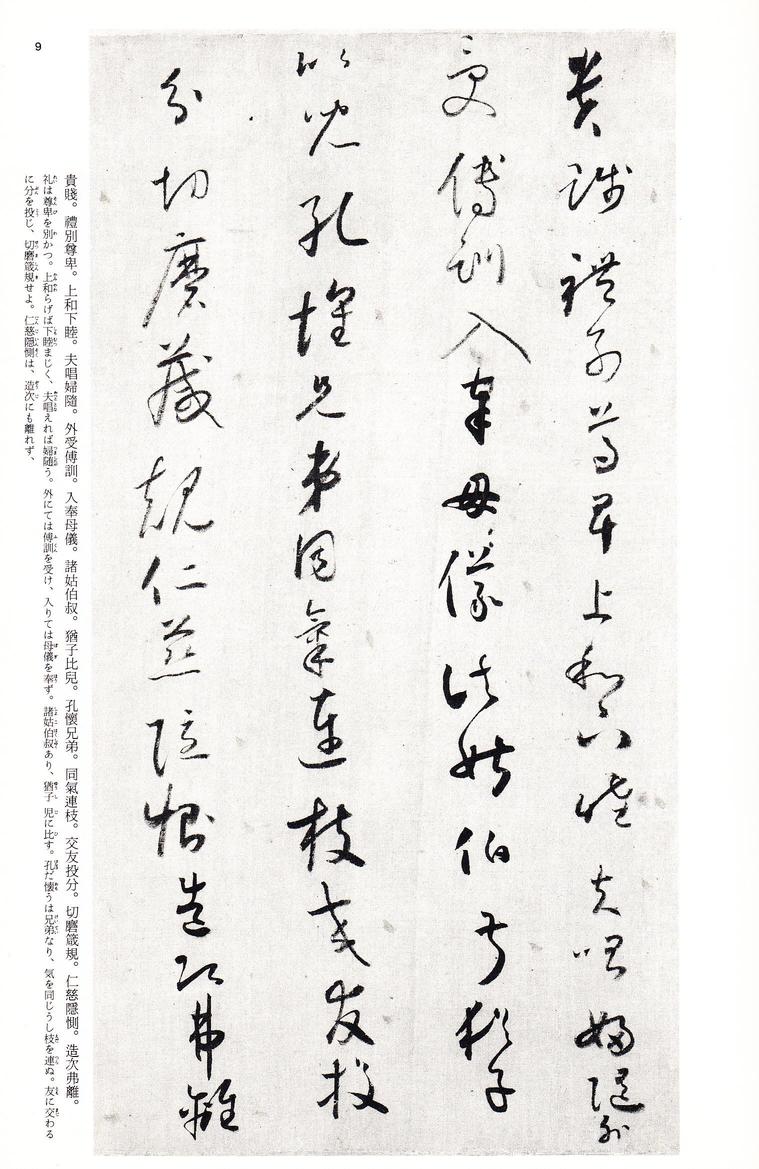 貴賤禮別尊卑上和下睦夫唱婦隨外
受傅訓入奉母儀諸姑伯叔猶子
比兒孔懷兄弟同氣連枝交友投
分切磨箴規仁慈隱惻造次弗離
貴賤。禮別尊卑。上和下睦。夫唱婦隨。外受傅訓。入奉母儀。諸姑伯叔。猶子比兒。孔懷兄弟。同氣連枝。交友投分。切磨箴規。仁慈隱惻。造次弗離。
礼は尊卑を別かつ。上和らげば下睦まじく、夫唱えれば婦随う。外にては傅訓を受け、入りては母儀を奉ず。諸姑伯叔あり、猶子 児に比す。孔だ懐うは兄弟なり、気を同じうし枝を連ぬ。友に交わる
に分を投じ、切磨箴規せよ。仁慈隠惻は、造次にも離れず、
9